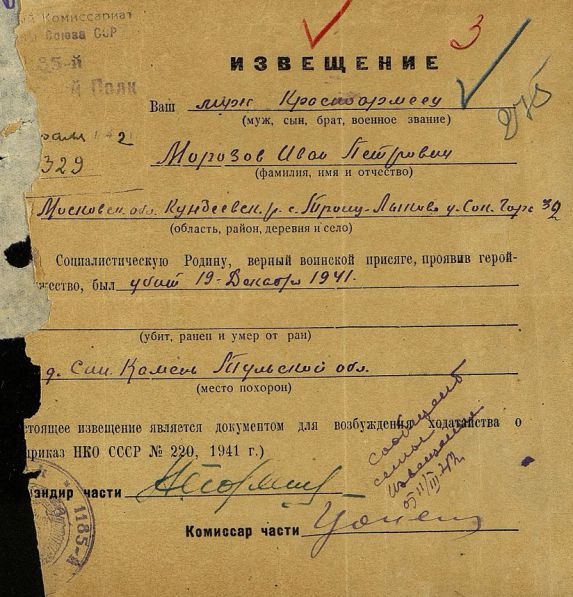 Комиссариат
Союза ССР
85-й
Полк
3
ИЗВЕЩЕНИЕ
Ваш муж Красноармеец
(муж, сын, брат, военное звание)
329
Морозов Иван Петрович
(фамилия, имя и отчество)
Московск. обл. Кунцевск. р. с. Троиц-Лыково
(область, район, деревня и село)
Социалистическую Родину, верный воинской присяге, проявив герой-
жество, был убит 19 Декабря 1941.
(убит, ранен и умер от ран)
д. Син. Камень Тульской обл.
(место похорон)
стоящее извещение является документом для возбуждения ходатайства о
приказ НКО СССР № 220, 1941 г.)
сообщено
семье
извещением
андир части
Комиссар части
1185-й